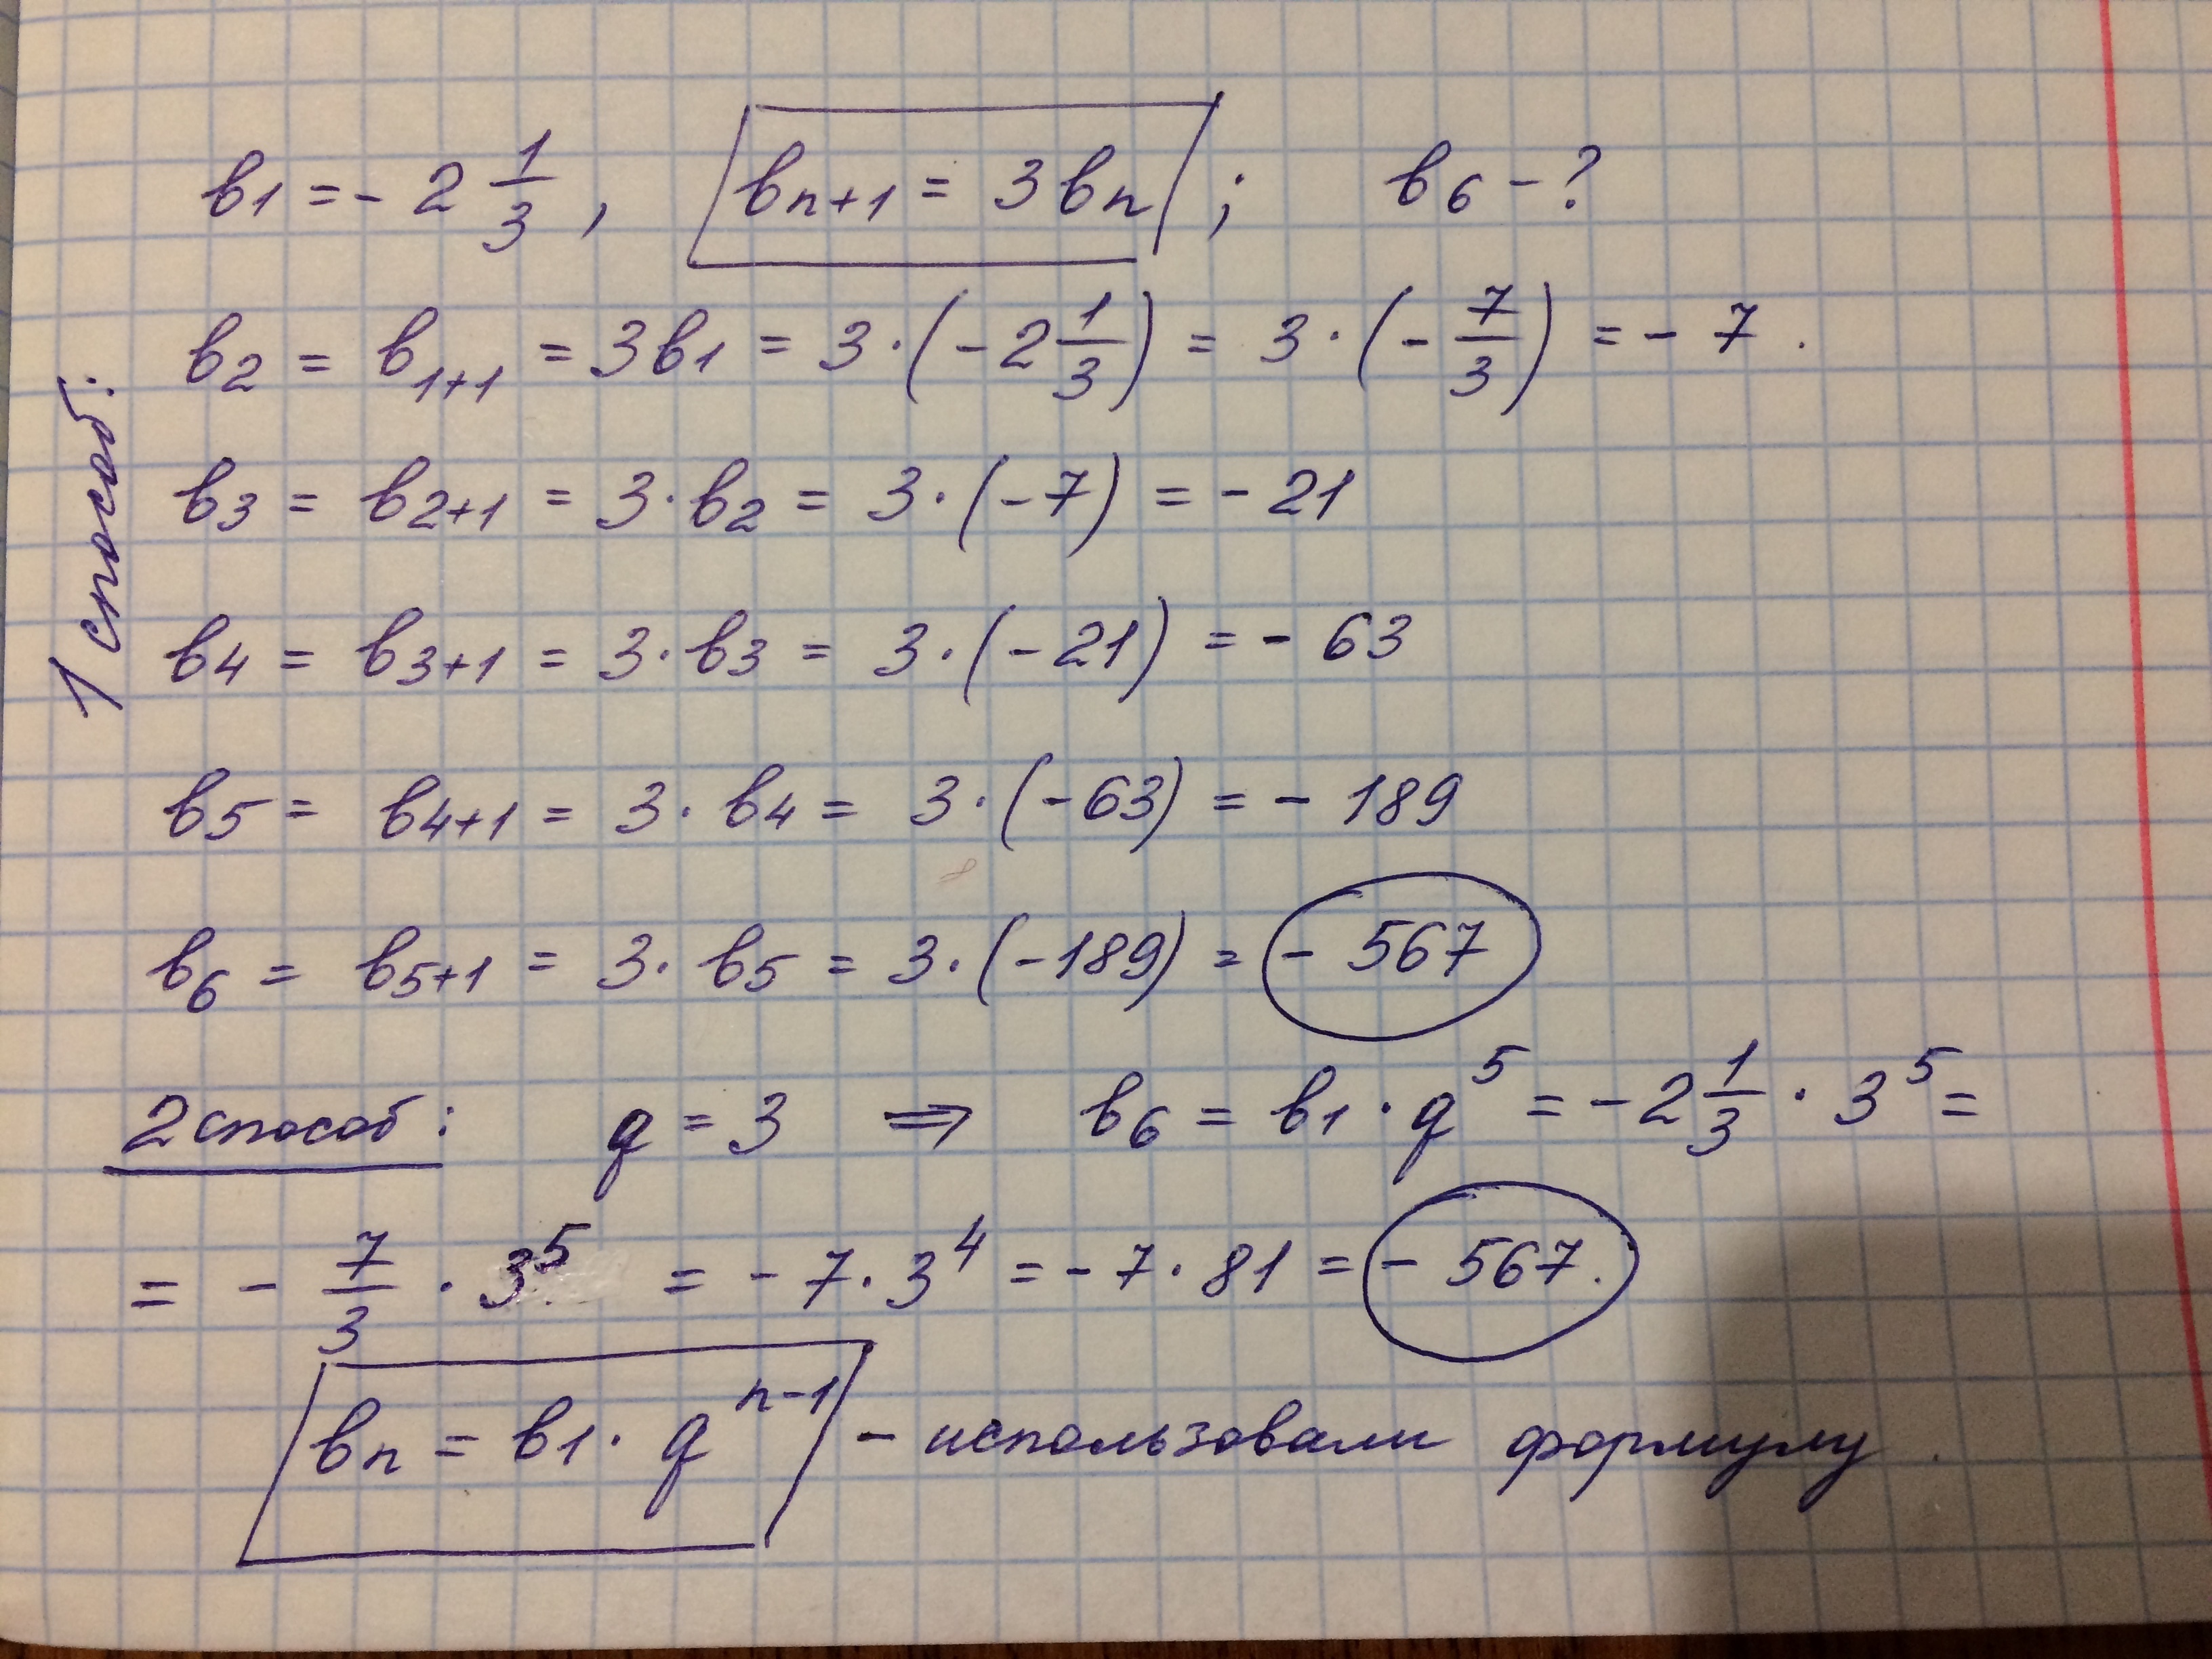 b₁ = - 2 1/3 , bₙ₊₁ = 3bₙ ; b₆ - ?
1 способ:
b₂ = b₁₊₁ = 3b₁ = 3 · (- 2 1/3) = 3 · (- 7/3) = - 7 .
b₃ = b₂₊₁ = 3 · b₂ = 3 · (- 7) = - 21
b₄ = b₃₊₁ = 3 · b₃ = 3 · (- 21) = - 63
b₅ = b₄₊₁ = 3 · b₄ = 3 · (- 63) = - 189
b₆ = b₅₊₁ = 3 · b₅ = 3 · (- 189) = - 567
2 способ: q = 3 ⇒ b₆ = b₁ · q⁵ = - 2 1/3 · 3⁵ =
= - 7/3 · 3⁵ = - 7 · 3⁴ = - 7 · 81 = - 567.
bₙ = b₁ · qⁿ⁻¹ - использовали формулу .